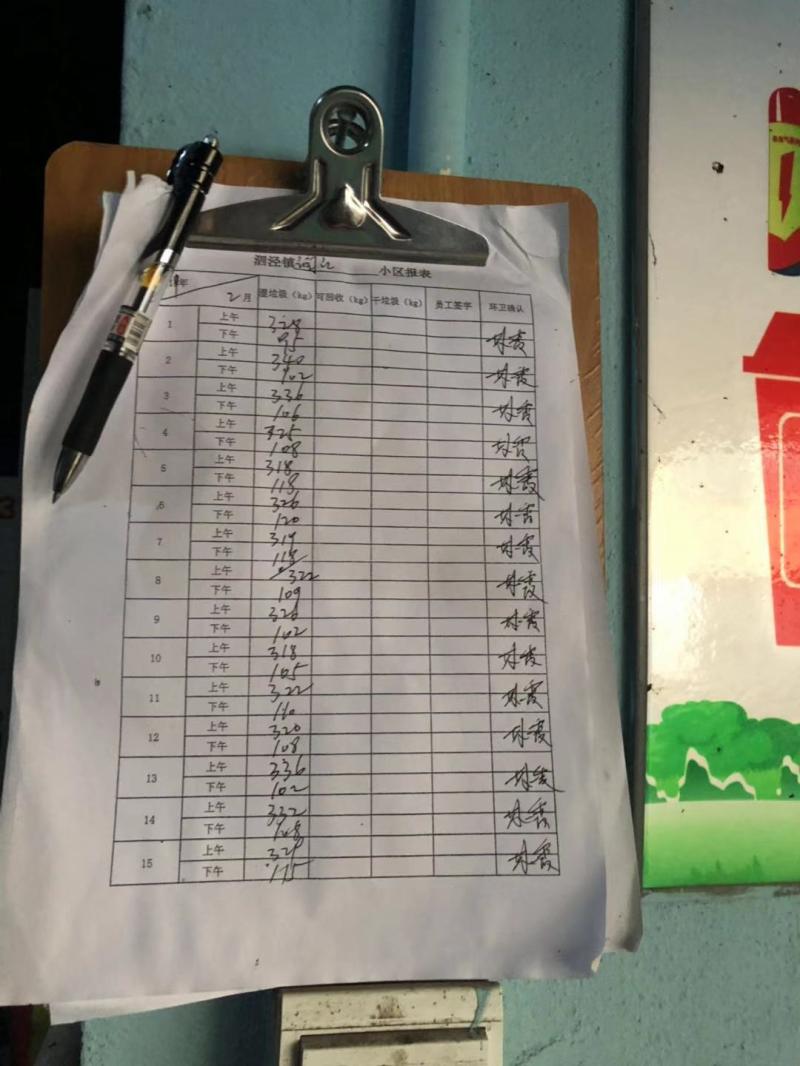 泗泾镇 小区报表
年 2月 湿垃圾（kg） 可回收（kg） 干垃圾（kg） 员工签字 环卫确认
1 上午 328
下午 95 林霞
2 上午 340
下午 102 林霞
3 上午 336
下午 106 林霞
4 上午 325
下午 108 林霞
5 上午 318
下午 118 林霞
6 上午 326
下午 120 林霞
7 上午 319
下午 118 林霞
8 上午 322
下午 109 林霞
9 上午 326
下午 102 林霞
10 上午 318
下午 105 林霞
11 上午 322
下午 110 林霞
12 上午 320
下午 108 林霞
13 上午 336
下午 102 林霞
14 上午 332
下午 108 林霞
15 上午 329
下午 115 林霞